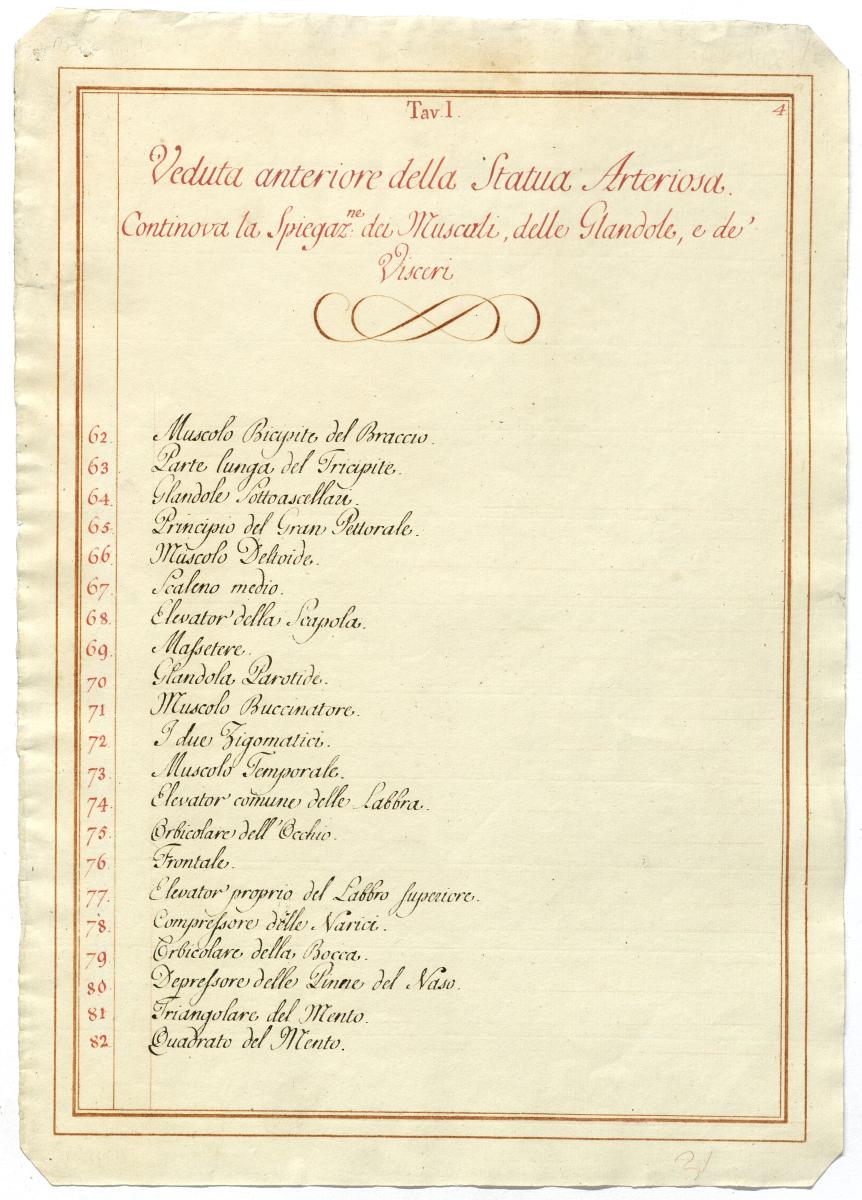 Tav. I.
4
Veduta anteriore della Statua Arteriosa.
Continova la Spiegaz.ne dei Muscoli, delle Glandole, e de'
Visceri
62. Muscolo Bicipite del Braccio.
63. Parte lunga del Tricipite.
64. Glandole Sottoascellari.
65. Principio del Gran Pettorale.
66. Muscolo Deltoide.
67. Scaleno medio.
68. Elevator della Scapola.
69. Maſsetere.
70. Glandola Parotide.
71. Muscolo Buccinatore.
72. I due Zigomatici.
73. Muscolo Temporale.
74. Elevator comune delle Labbra.
75. Orbicolare dell'Occhio.
76. Frontale.
77. Elevator proprio del Labbro superiore.
78. Compreſsore delle Narici.
79. Orbicolare della Bocca.
80. Depreſsore delle Pinne del Naso.
81. Triangolare del Mento.
82. Quadrato del Mento.